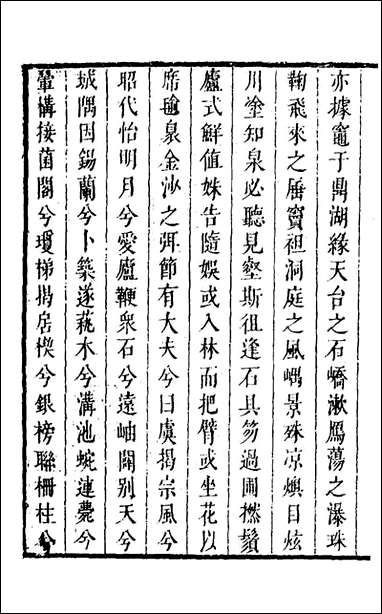 亦據竈于鼎湖緣天台之石嶠漱鴈蕩之瀑珠
鞠飛來之厜竇袒洞庭之風嵎景殊凉燠目炫
川塗知泉必聽見壑斯徂逢石具笏過圃撚鬚
廬式鮮值姝告隨娛或入林而把臂或坐花以
席毺裊金沙之弭節有大夫兮曰虞揭宗風兮
昭代怡明月兮愛廬鞭衆石兮遠岫闢别天兮
城隅因錫蘭兮卜築遂蓺木兮溝池蜿連甍兮
翬構接菌閣兮瓊梯揭居楔兮銀榜聯柵柱兮